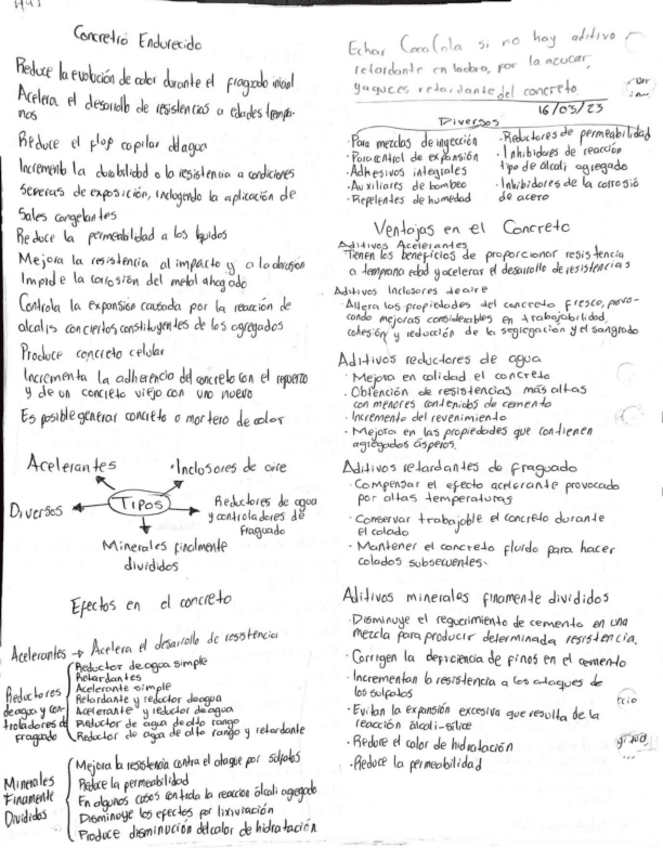 Concreto Endurecido
Reduce la evolución de calor durante el fraguado inicial
Acelera el desarrollo de resistencias a edades tempra-
nas
Reduce el flujo capilar del agua
Incrementa la durabilidad o la resistencia a condiciones
severas de exposición, incluyendo la aplicación de
sales congelantes
Reduce la permeabilidad a los líquidos
Mejora la resistencia al impacto y a la abrasión
Impide la corrosión del metal ahogado
Controla la expansión causada por la reacción de
alcalis con ciertos constituyentes de los agregados
Produce concreto celular
Incrementa la adherencia del concreto con el refuerzo
y de un concreto viejo con uno nuevo
Es posible generar concreto o mortero de color
TIPOS
Acelerantes
Inclusores de aire
Diversos
Reductores de agua
y controladores de
fraguado
Minerales finalmente
divididos
Efectos en el concreto
Acelerantes → Acelera el desarrollo de resistencia
Reductores
de agua y con-
troladores de
fraguado
Reductor de agua simple
Retardantes
Acelerante simple
Retardante y reductor de agua
Acelerante y reductor de agua
Reductor de agua de alto rango
Reductor de agua de alto rango y retardante
Minerales
Finamente
Divididos
Mejora la resistencia contra el ataque por sulfatos
Reduce la permeabilidad
En algunos casos controla la reacción álcali agregado
Disminuye los efectos por lixiviación
Produce disminución del calor de hidratación
Echar CocaCola si no hay aditivo
retardante en la obra, por la azucar,
ya que es retardante del concreto.
16/03/23
Diversos
· Para mezclas de inyección
· Para control de expansión
· Adhesivos integrales
· Auxiliares de bombeo
· Repelentes de humedad
· Reductores de permeabilidad
· Inhibidores de reacción
tipo de álcali agregado
· Inhibidores de la corrosió
de acero
Ventajas en el Concreto
Aditivos Acelerantes
Tienen los beneficios de proporcionar resistencia
a temprana edad y acelerar el desarrollo de resistencias
Aditivos Inclusores de aire
· Altera las propiedades del concreto fresco, provo-
cando mejoras considerables en trabajabilidad,
cohesión y reducción de la segregación y el sangrado
Aditivos reductores de agua
· Mejora en calidad el concreto
· Obtención de resistencias más altas
con menores contenidos de cemento
· Incremento del revenimiento
· Mejora en las propiedades que contienen
agregados ásperos.
Aditivos retardantes de fraguado
· Compensar el efecto acelerante provocado
por altas temperaturas
· Conservar trabajable el concreto durante
el colado
· Mantener el concreto fluido para hacer
colados subsecuentes.
Aditivos minerales finamente divididos
· Disminuye el requerimiento de cemento en una
mezcla para producir determinada resistencia.
· Corrigen la deficiencia de finos en el cemento
· Incrementan la resistencia a los ataques de
los sulfatos
· Evitan la expansión excesiva que resulta de la
reacción álcali-sílice
· Reduce el calor de hidratación
· Reduce la permeabilidad